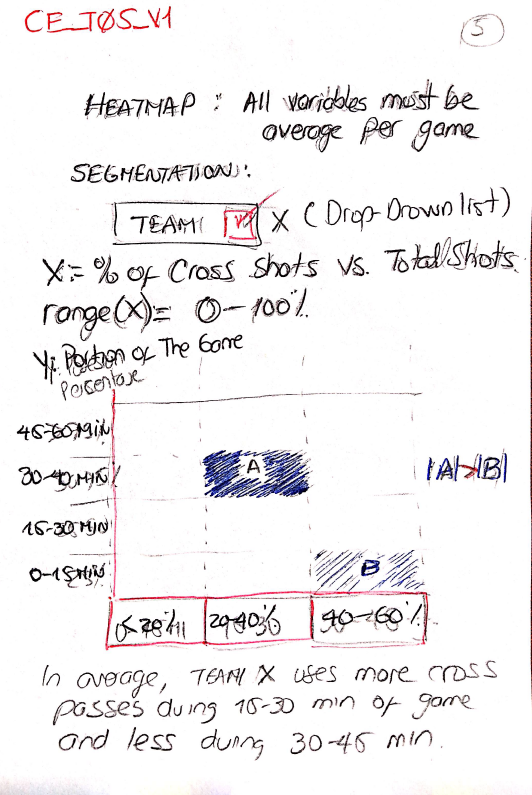 CE_TØS_V1
5
HEATMAP : All variables must be
average per game
SEGMENTATION:
TEAM X (Drop-Drown list)
X = % of Cross Shots vs. Total Shots.
range(X) = 0-100%
Y: Portion of The Game
Percentage
45-60 MIN
30-40 MIN
A
|A|>|B|
15-30 MIN
0-15 MIN
B
20-40%
40-60%
In average, TEAM X uses more cross
passes duing 15-30 min of game
and less duing 30-45 min.